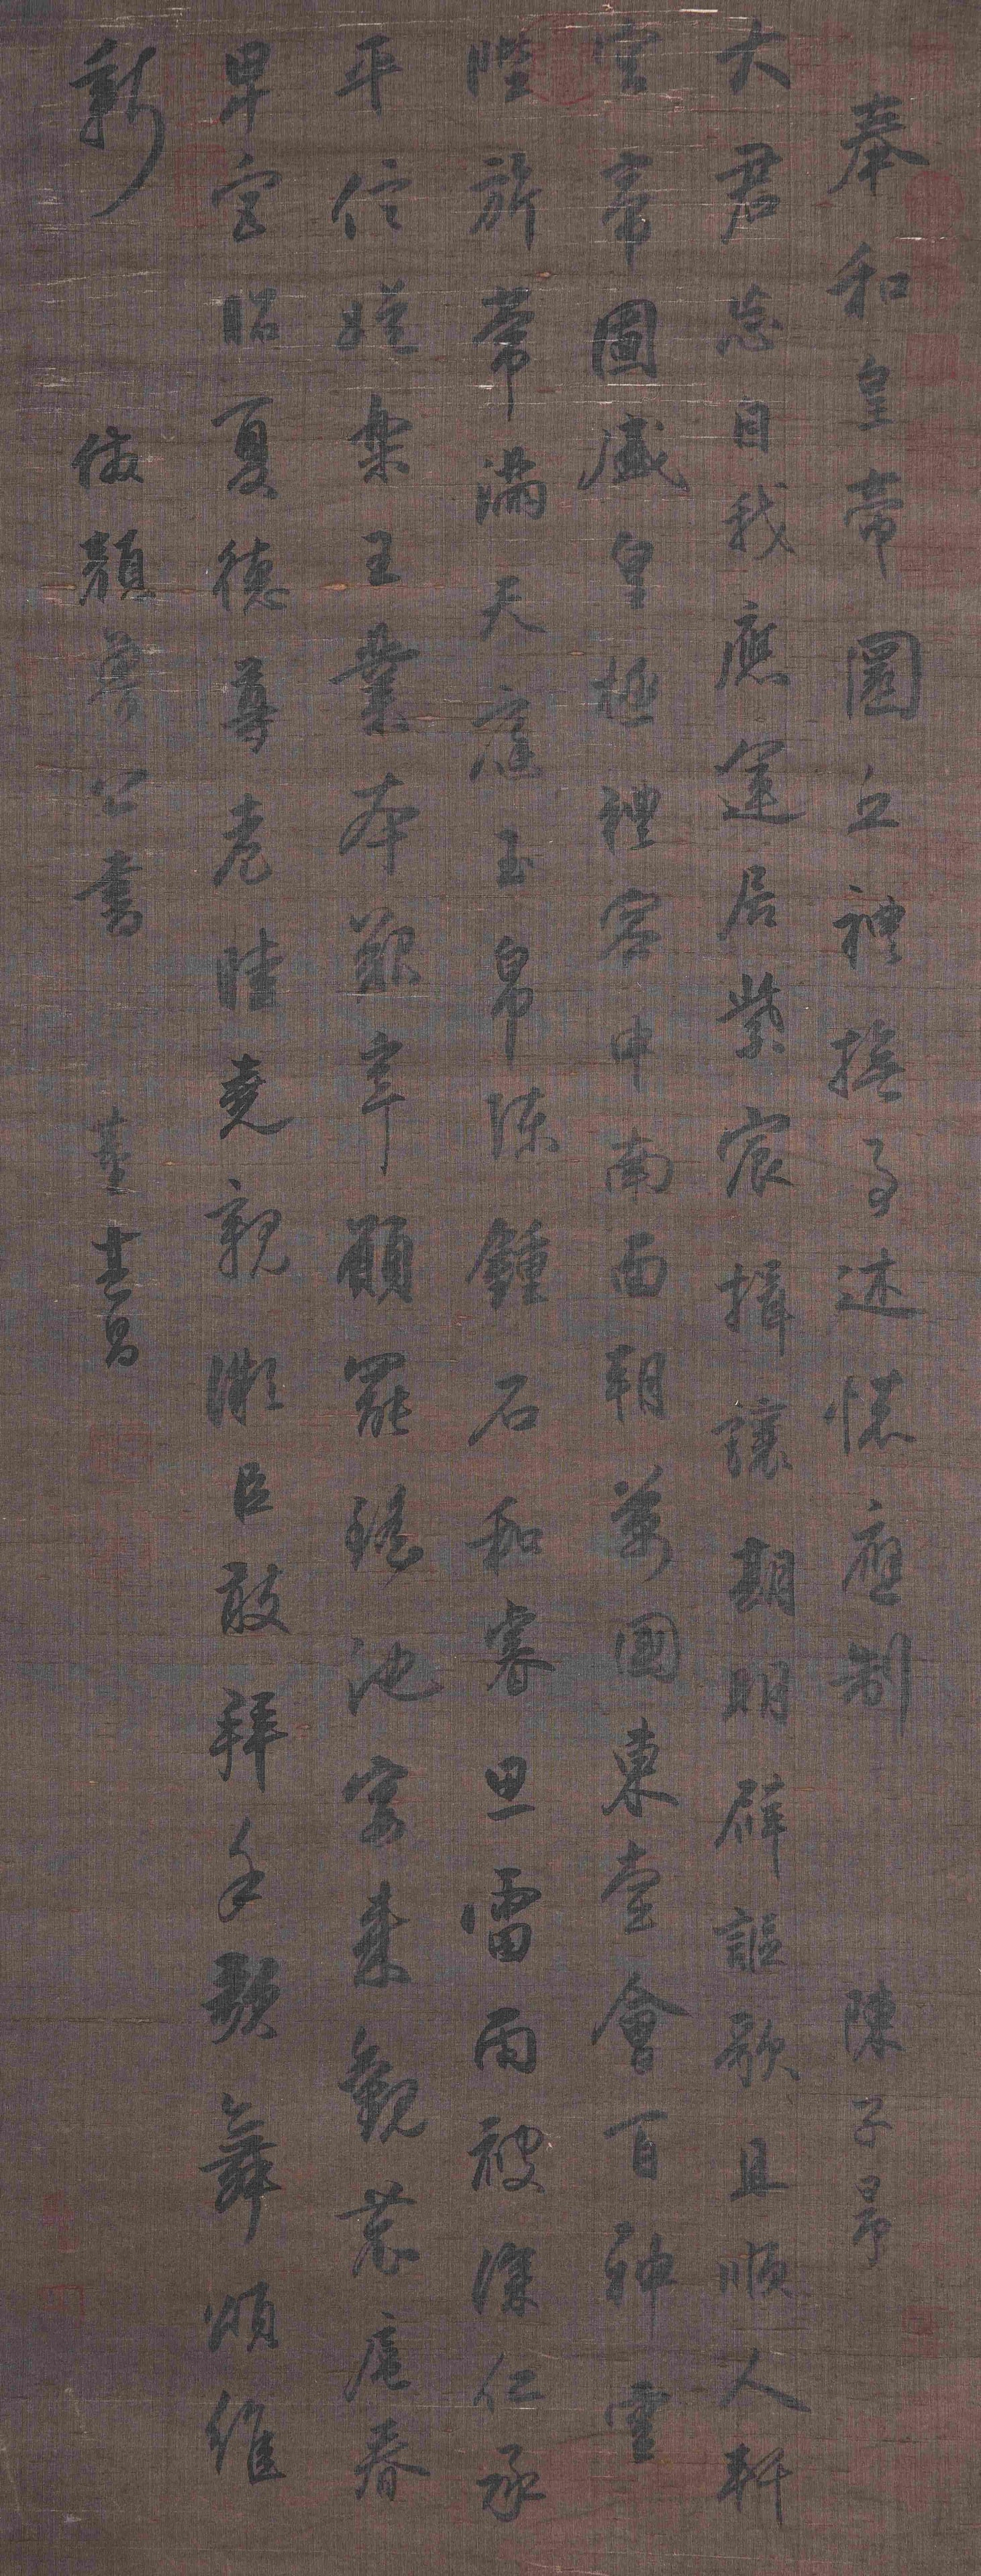 奉和皇帝圜丘禮撫事述懷應制 陳子昻
大君忘自我應運居紫宸揖讓期明辟謳歌且順人軒
宮帝圖盛皇極禮容申南面朝萬國東堂會百神雲
陛旂常滿天庭玉帛陳鍾石和睿思雷雨被深仁承
平信娱樂王業本艱辛願罷瑤池宴來觀農扈春
卑宮昭夏德尊老睦堯親微臣敢拜手歌舞頌維
新 倣顏魯公書 董其昌